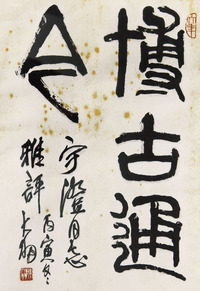 博古通
今
宇澄同志
雅評
丙寅冬
大翔